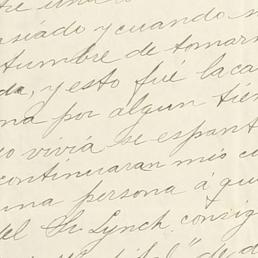 asiado y cuando
tumbre de tomar
da, y esto fué la ca
na por algun tiem
vivia se espant
continuaran mis cu
una persona á qui
del Sr. Lynch. consig
de